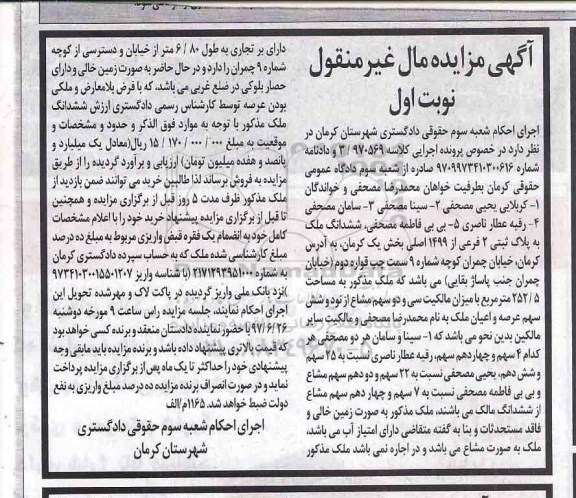 آگهی مزایده مال غیر منقول
نوبت اول
اجرای احکام شعبه سوم حقوقی دادگستری شهرستان کرمان در
نظر دارد در خصوص پرونده اجرایی کلاسه ۹۷۰۵۶۹ / ۳ و دادنامه
شماره ۹۷۰۹۹۷۳۴۱۰۳۰۰۶۱۶ صادره از شعبه سوم دادگاه عمومی
حقوقی کرمان بطرفیت خواهان محمدرضا مصحفی و خواندگان
۱- کربلایی یحیی مصحفی ۲- سینا مصحفی ۳- سامان مصحفی
۴- رقیه عطار ناصری ۵- بی بی فاطمه مصحفی، ششدانگ ملک
به پلاک ثبتی ۲ فرعی از ۱۴۹۹ اصلی بخش یک کرمان، به آدرس
کرمان، خیابان چمران کوچه شماره ۹ سمت چپ قواره دوم (خیابان
چمران جنب پاساژ بقایی) می باشد که ملک مذکور به مساحت
۵ / ۲۵۲ متر مربع با میزان مالکیت سی و دو سهم مشاع از نود و شش
سهم عرصه و اعیان ملک به نام محمدرضا مصحفی و مالکیت سایر
مالکین بدین نحو می باشد که ۱- سینا و سامان هر دو مصحفی هر
کدام ۴ سهم و چهاردهم سهم، رقیه عطار ناصری نسبت به ۲۵ سهم
و شش دهم، یحیی مصحفی نسبت به ۲۲ سهم و دو دهم سهم مشاع
و بی بی فاطمه مصحفی نسبت به ۷ سهم و چهار دهم سهم مشاع
از ششدانگ مالک می باشند، ملک مذکور به صورت زمین خالی و
فاقد مستحدثات و بنا به گفته متقاضی دارای امتیاز آب می باشد،
ملک به صورت مشاع می باشد و در اجاره نمی باشد ملک مذکور
دارای بر تجاری به طول ۸۰ / ۶ متر از خیابان و دسترسی از کوچه
شماره ۹ چمران را دارد و در حال حاضر به صورت زمین خالی و دارای
حصار بلوکی در ضلع غربی می باشد، که با فرض بلامعارض و ملکی
بودن عرصه توسط کارشناس رسمی دادگستری ارزش ششدانگ
ملک مذکور با توجه به موارد فوق الذکر و حدود و مشخصات و
موقعیت به مبلغ ۰۰۰/ ۰۰۰/ ۱۷۰/ ۱۵ ریال(معادل یک میلیارد و
پانصد و هفده میلیون تومان) ارزیابی و برآورد گردیده را از طریق
مزایده به فروش برساند لذا طالبین خرید می توانند ضمن بازدید از
ملک مذکور ظرف مدت ۵ روز قبل از برگزاری مزایده و همچنین
تا قبل از برگزاری مزایده پیشنهاد خرید خود را با اعلام مشخصات
کامل خود به انضمام یک فقره قبض واریزی مربوط به مبلغ ده درصد
مبلغ کارشناسی شده ملک که به حساب سپرده دادگستری کرمان
به شماره ۲۱۷۱۲۹۳۹۵۱۰۰۰ (با شناسه واریز ۹۷۳۴۱۰۳۰۰۱۵۵۰۱۲۰۷
)نزد بانک ملی واریز گردیده در پاکت لاک و مهرشده تحویل این
اجرای احکام نمایند، جلسه مزایده راس ساعت ۹ مورخه دوشنبه
۹۷/۶/۲۶ با حضور نماینده دادستان منعقد و برنده کسی خواهد بود
که قیمت بالاتری پیشنهاد داده باشد و برنده مزایده باید مابقی وجه
پیشنهادی خود را حداکثر تا یک ماه پس از برگزاری مزایده پرداخت
نماید و در صورت انصراف برنده مزایده ده درصد مبلغ واریزی به نفع
دولت ضبط خواهد شد. ۱۱۶۵م/الف
اجرای احکام شعبه سوم حقوقی دادگستری
شهرستان کرمان